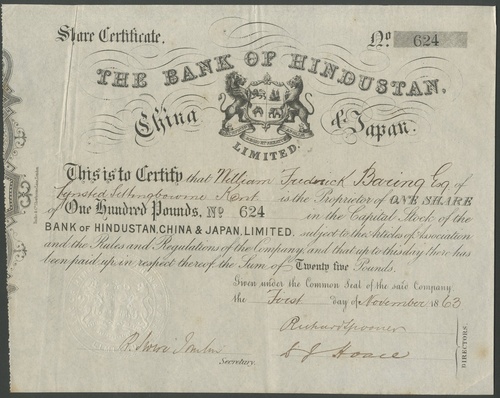 Share Certificate.
No. 624
THE BANK OF HINDUSTAN,
China & Japan.
LIMITED.
This is to Certify that William Frederick Baring Esq of
Kent is the Proprietor of ONE SHARE
of One Hundred Pounds, No 624 in the Capital Stock of the
BANK OF HINDUSTAN, CHINA & JAPAN, LIMITED, subject to the Articles of Association
and the Rules and Regulations of the Company, and that up to this day there has
been paid up in respect thereof the Sum of Twenty five Pounds.
Given under the Common Seal of the said Company
the First day of November 1863
Richard Spooner
Secretary.
DIRECTORS.